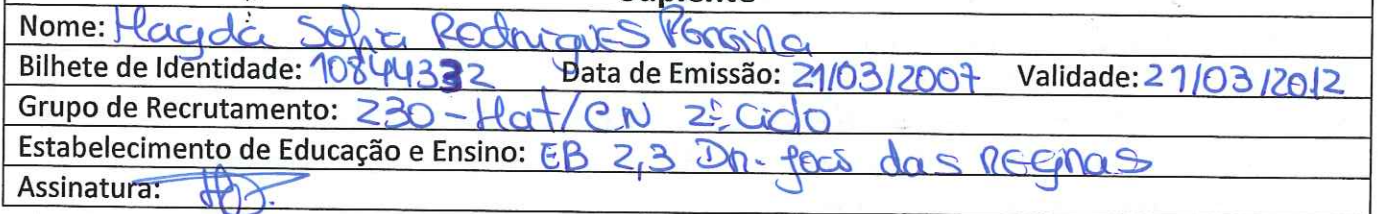 Suplente
Nome: Magda Sofia Rodrigues Pereira
Bilhete de Identidade: 10844332 Data de Emissão: 21/03/2007 Validade: 21/03/2012
Grupo de Recrutamento: 230 - Mat/CN 2º Ciclo
Estabelecimento de Educação e Ensino: EB 2,3 Dr. João das Regras
Assinatura: